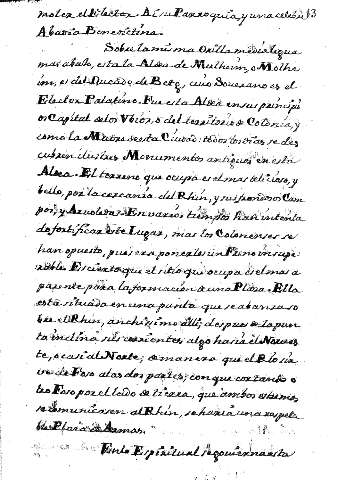 mo la el Elector. A su Parroquia, y una celebre 13
Abadia Benedictina.
Sobre la misma Orilla media legua
mas abajo, esta la Aldea de Mulheim, o Molhe
im, es del Ducado de Berg, cuio Soverano es el
Elector Palatino. Fue esta Aldea en sus principi
os Capital de los Ubios, y del territorio de Colonia, y
como la Madre de esta Ciudad: todos los dias se des
cubren ilustres Monumentos antiguos en esta
Aldea. El terreno que ocupa es el mas delicioso, y
bello, por la cercania del Rhin, y sus hondos Cam
pos, y Arboledas. En varios tiempos han intenta
do fortificar este Lugar, mas los Colonenses se
han opuesto, pues era ponerles un Freno insupe
rable. Es cierto que el sitio que ocupa es el mas a
parente, para la formacion de una Plaza. Ella
esta situada en una punta que se abanza so
bre el Rhin, anchisimo alli; despues de la pun
ta inclina sus corrientes algo hasia el Norues
te, o casi al Norte; de manera que el Rio sir
ve de Foso a las dos partes; con que cortando o
tro Foso por el lado de tierra, que ambos extremos
se comunicasen al Rhin, se haria una respeta
ble Plaza de Armas.
En lo Espiritual se govierna esta